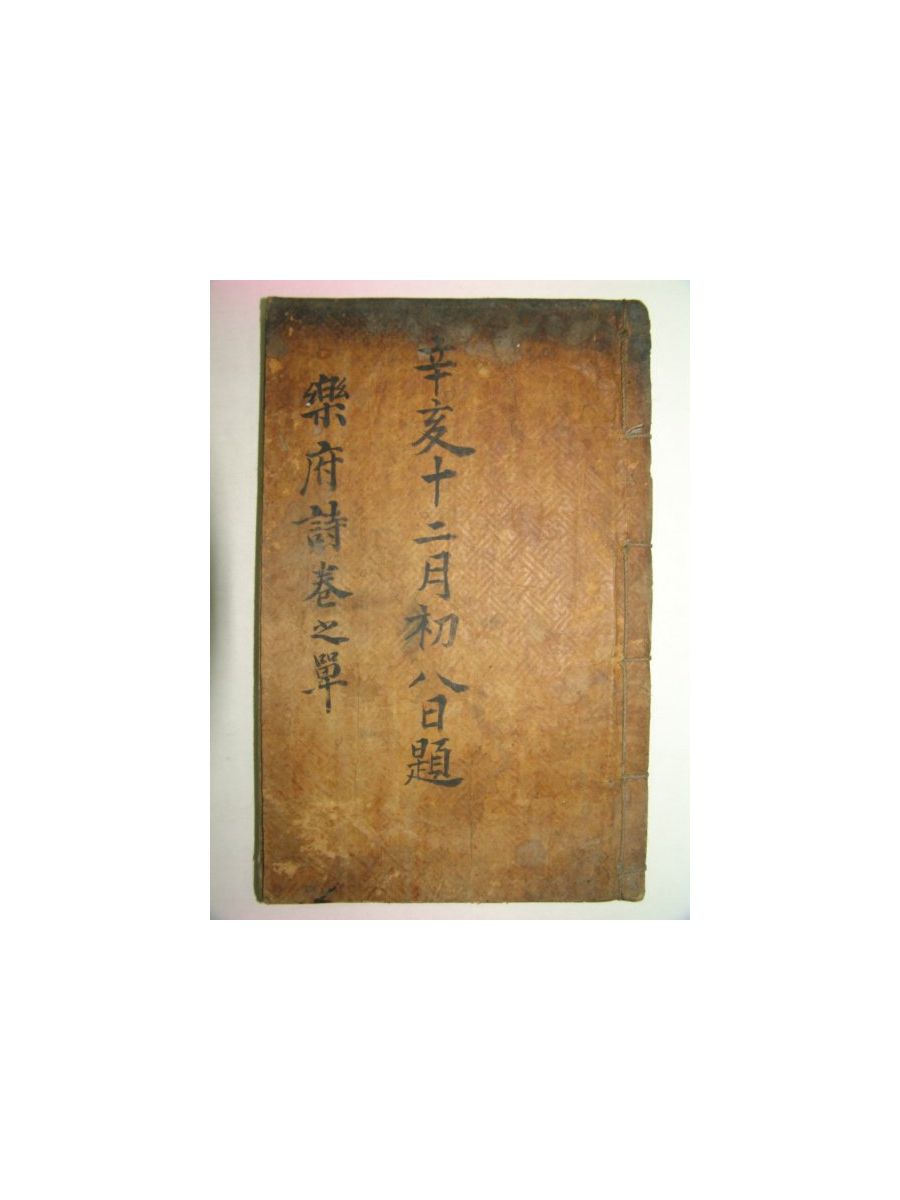 辛亥十二月初八日題
樂府詩卷之單